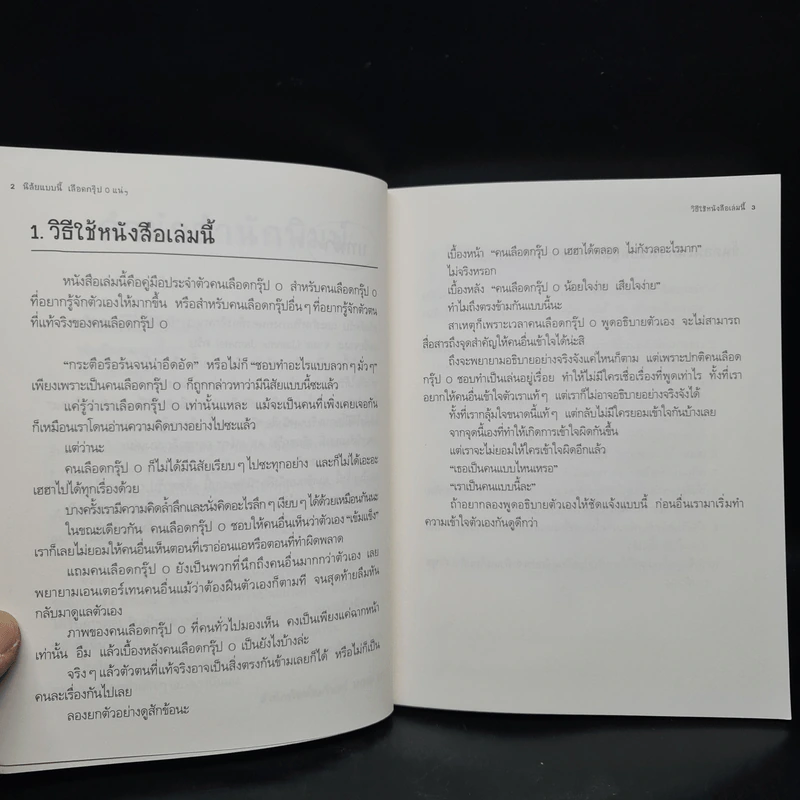 2 นิสัยแบบนี้ เลือดกรุ๊ป O แน่ๆ
1. วิธีใช้หนังสือเล่มนี้
หนังสือเล่มนี้คือคู่มือประจำตัวคนเลือดกรุ๊ป O สำหรับคนเลือดกรุ๊ป O
ที่อยากรู้จักตัวเองให้มากขึ้น หรือสำหรับคนเลือดกรุ๊ปอื่นๆ ที่อยากรู้จักตัวตน
ที่แท้จริงของคนเลือดกรุ๊ป O
“กระตือรือร้นจนน่าอึดอัด” หรือไม่ก็ “ชอบทำอะไรแบบลวกๆ มั่วๆ”
เพียงเพราะเป็นคนเลือดกรุ๊ป O ก็ถูกกล่าวหาว่ามีนิสัยแบบนี้ซะแล้ว
แค่รู้ว่าเราเลือดกรุ๊ป O เท่านั้นแหละ แม้จะเป็นคนที่เพิ่งเคยเจอกัน
ก็เหมือนเราโดนอ่านความคิดบางอย่างไปซะแล้ว
แต่ว่านะ
คนเลือดกรุ๊ป O ก็ไม่ได้มีนิสัยเรียบๆ ไปซะทุกอย่าง และก็ไม่ได้เอะอะ
เฮฮาไปได้ทุกเรื่องด้วย
บางครั้งเรามีความคิดล้ำลึกและนั่งคิดอะไรลึกๆ เงียบๆ ได้ด้วยเหมือนกันนะ
ในขณะเดียวกัน คนเลือดกรุ๊ป O ชอบให้คนอื่นเห็นว่าตัวเอง “เข้มแข็ง”
เราก็เลยไม่ยอมให้คนอื่นเห็นตอนที่เราอ่อนแอหรือตอนที่ทำผิดพลาด
แถมคนเลือดกรุ๊ป O ยังเป็นพวกที่นึกถึงคนอื่นมากกว่าตัวเอง เลย
พยายามเอนเตอร์เทนคนอื่นแม้ว่าต้องฝืนตัวเองก็ตามที จนสุดท้ายลืมหัน
กลับมาดูแลตัวเอง
ภาพของคนเลือดกรุ๊ป O ที่คนทั่วไปมองเห็น คงเป็นเพียงแค่ฉากหน้า
เท่านั้น อืม แล้วเบื้องหลังคนเลือดกรุ๊ป O เป็นยังไงบ้างล่ะ
จริงๆ แล้วตัวตนที่แท้จริงอาจเป็นสิ่งตรงกันข้ามเลยก็ได้ หรือไม่ก็เป็น
คนละเรื่องกันไปเลย
ลองยกตัวอย่างดูสักข้อนะ
วิธีใช้หนังสือเล่มนี้ 3
เบื้องหน้า “คนเลือดกรุ๊ป O เฮฮาได้ตลอด ไม่กังวลอะไรมาก”
ไม่จริงหรอก
เบื้องหลัง “คนเลือดกรุ๊ป O น้อยใจง่าย เสียใจง่าย”
ทำไมถึงตรงข้ามกันแบบนี้นะ
สาเหตุก็เพราะเวลาคนเลือดกรุ๊ป O พูดอธิบายตัวเอง จะไม่สามารถ
สื่อสารถึงจุดสำคัญให้คนอื่นเข้าใจได้น่ะสิ
ถึงจะพยายามอธิบายอย่างจริงจังแค่ไหนก็ตาม แต่เพราะปกติคนเลือด
กรุ๊ป O ชอบทำเป็นเล่นอยู่เรื่อย ทำให้ไม่มีใครเชื่อเรื่องที่พูดเท่าไร ทั้งที่เรา
อยากให้คนอื่นเข้าใจตัวเราแท้ๆ แต่เราก็ไม่อาจอธิบายอย่างจริงจังได้
ทั้งที่เรากลุ้มใจขนาดนี้แท้ๆ แต่กลับไม่มีใครยอมเข้าใจกันบ้างเลย
จากจุดนี้เองที่ทำให้เกิดการเข้าใจผิดกันขึ้น
แต่เราจะไม่ยอมให้ใครเข้าใจผิดอีกแล้ว
“เธอเป็นคนแบบไหนเหรอ”
“เราเป็นคนแบบนี้ละ”
ถ้าอยากลองพูดอธิบายตัวเองให้ชัดแจ้งแบบนี้ ก่อนอื่นเรามาเริ่มทำ
ความเข้าใจตัวเองกันดูดีกว่า